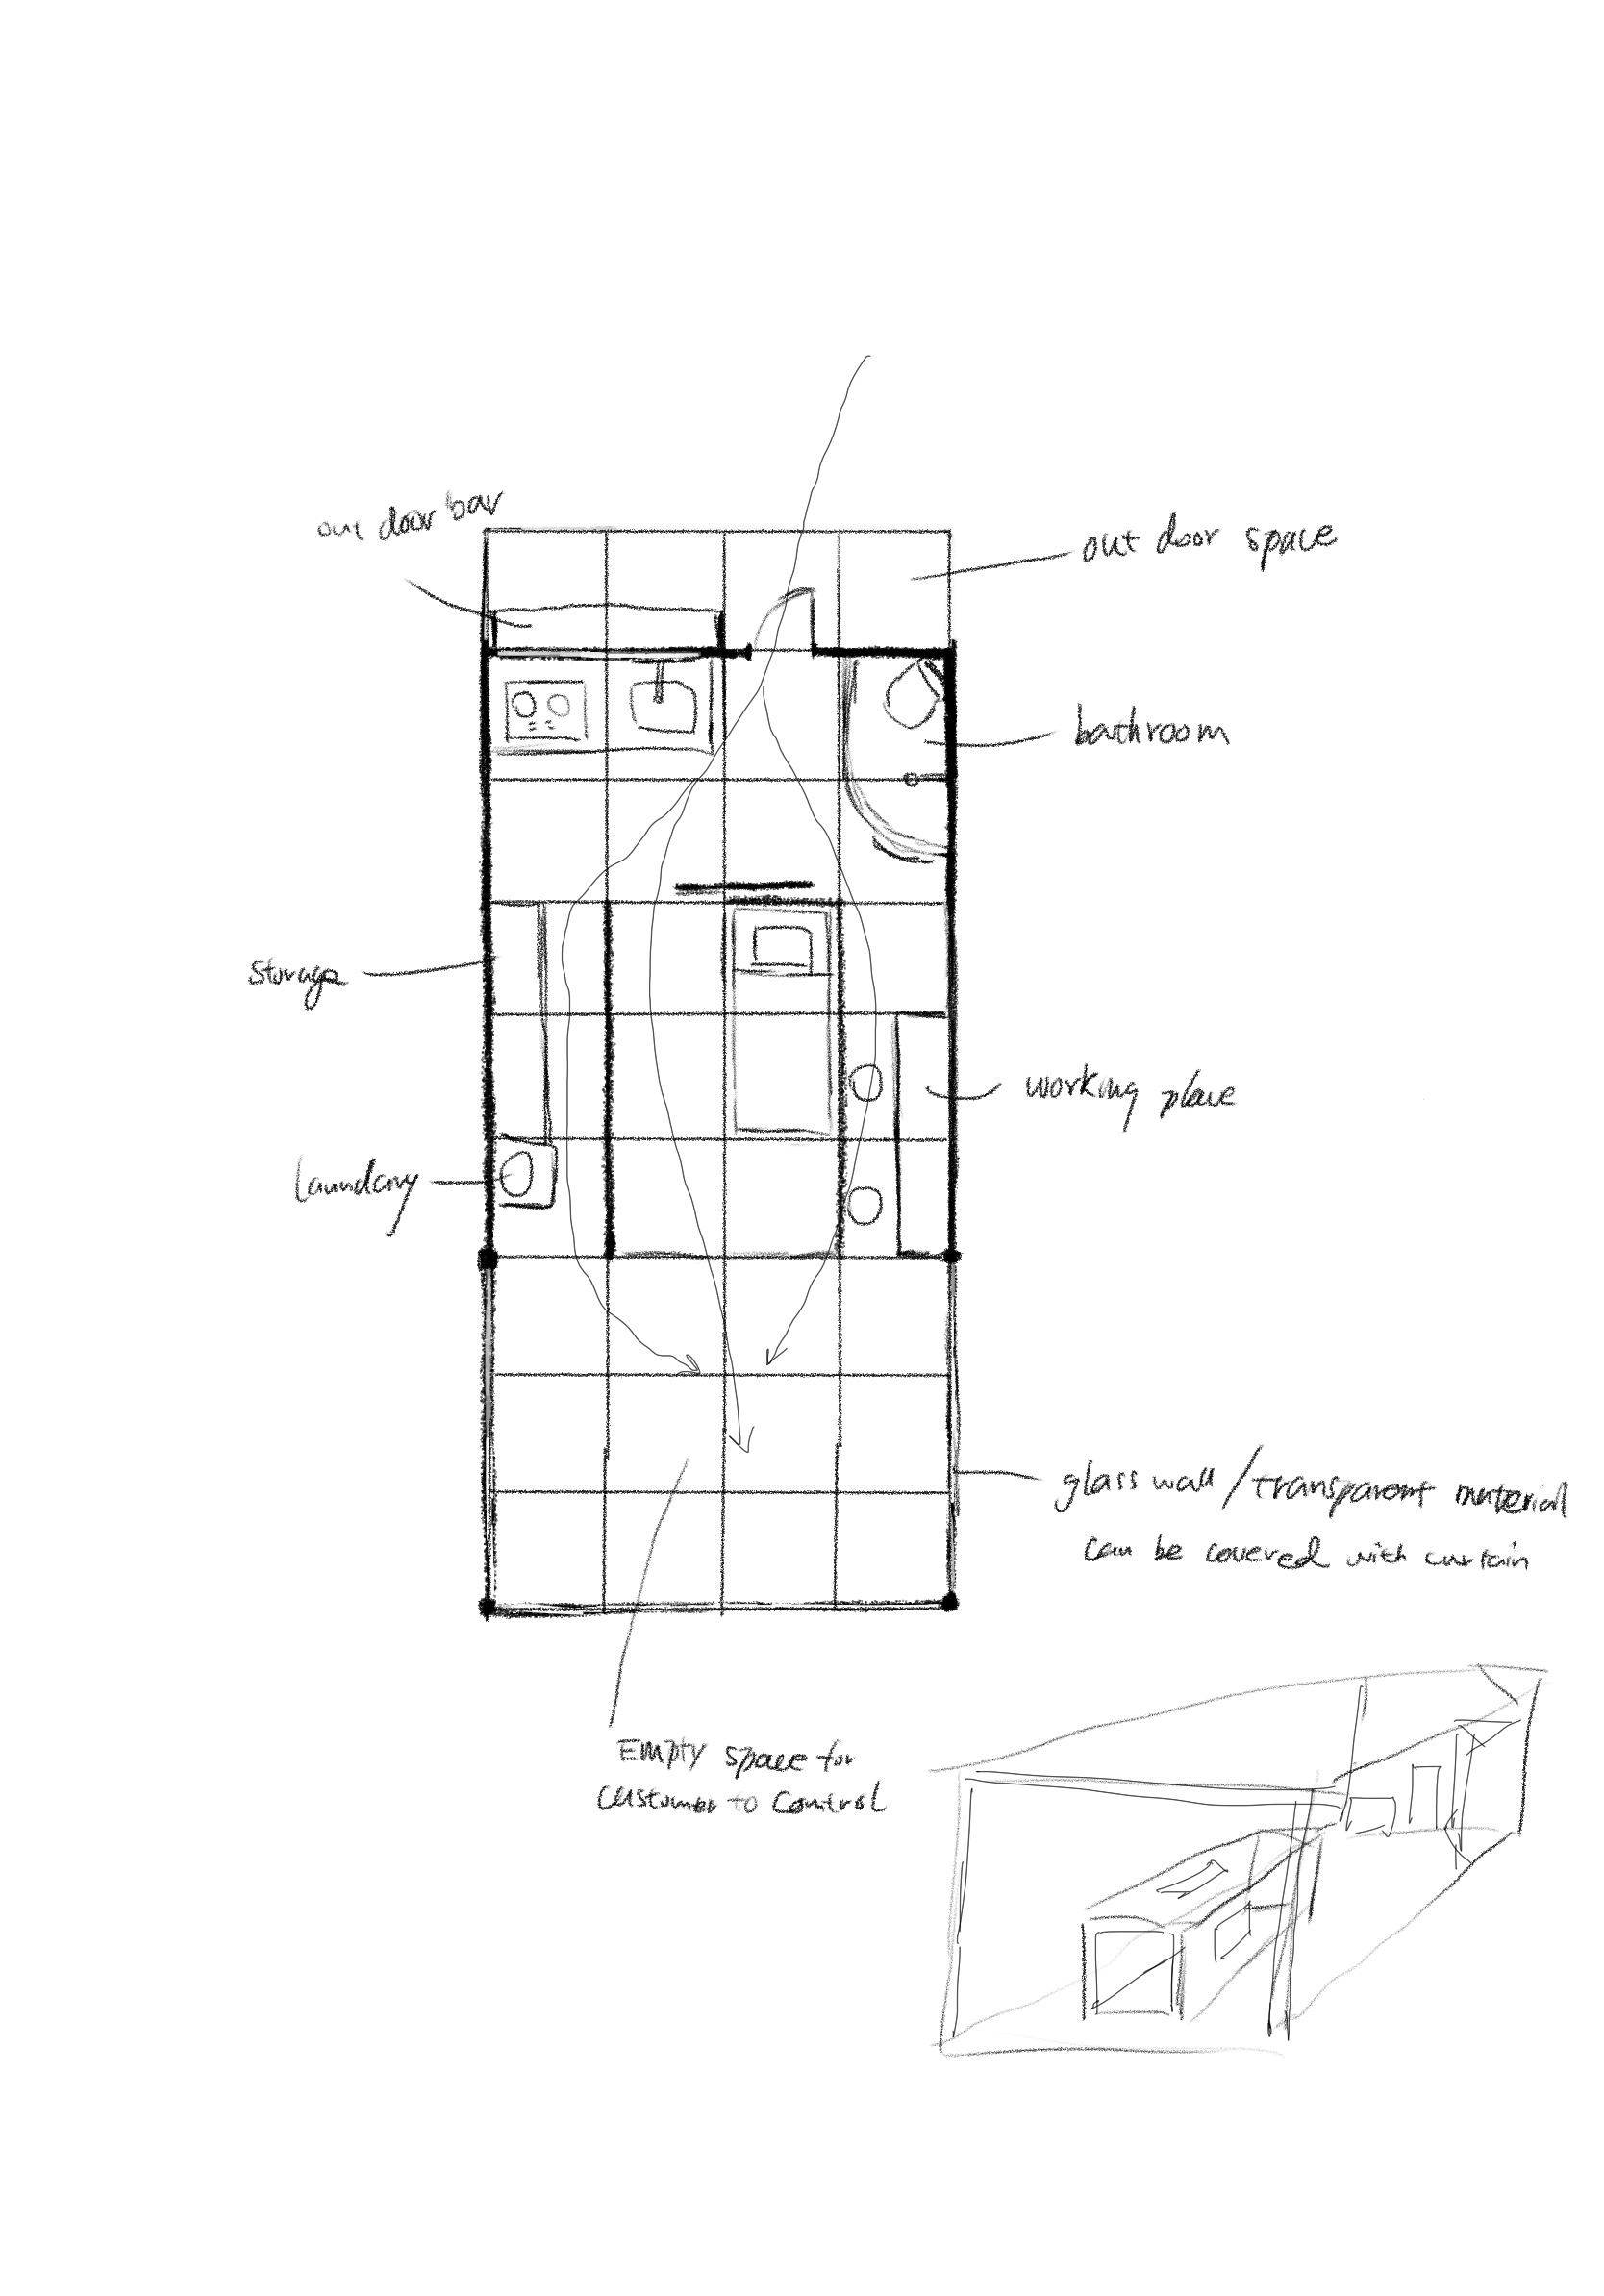 out door bar
out door space
bathroom
storage
working place
laundary
glass wall/transparent material
can be covered with curtain
Empty space for
customer to control